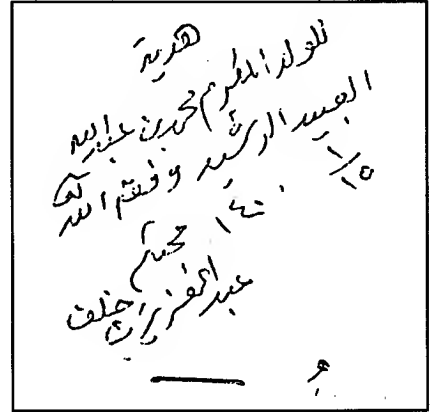 هدية
للولد المكرم محمد بن عبدالله
العبيد الرشيد وفقه الله
١٥/١ ١٤٠٠
محبكم
عبدالعزيز خلف